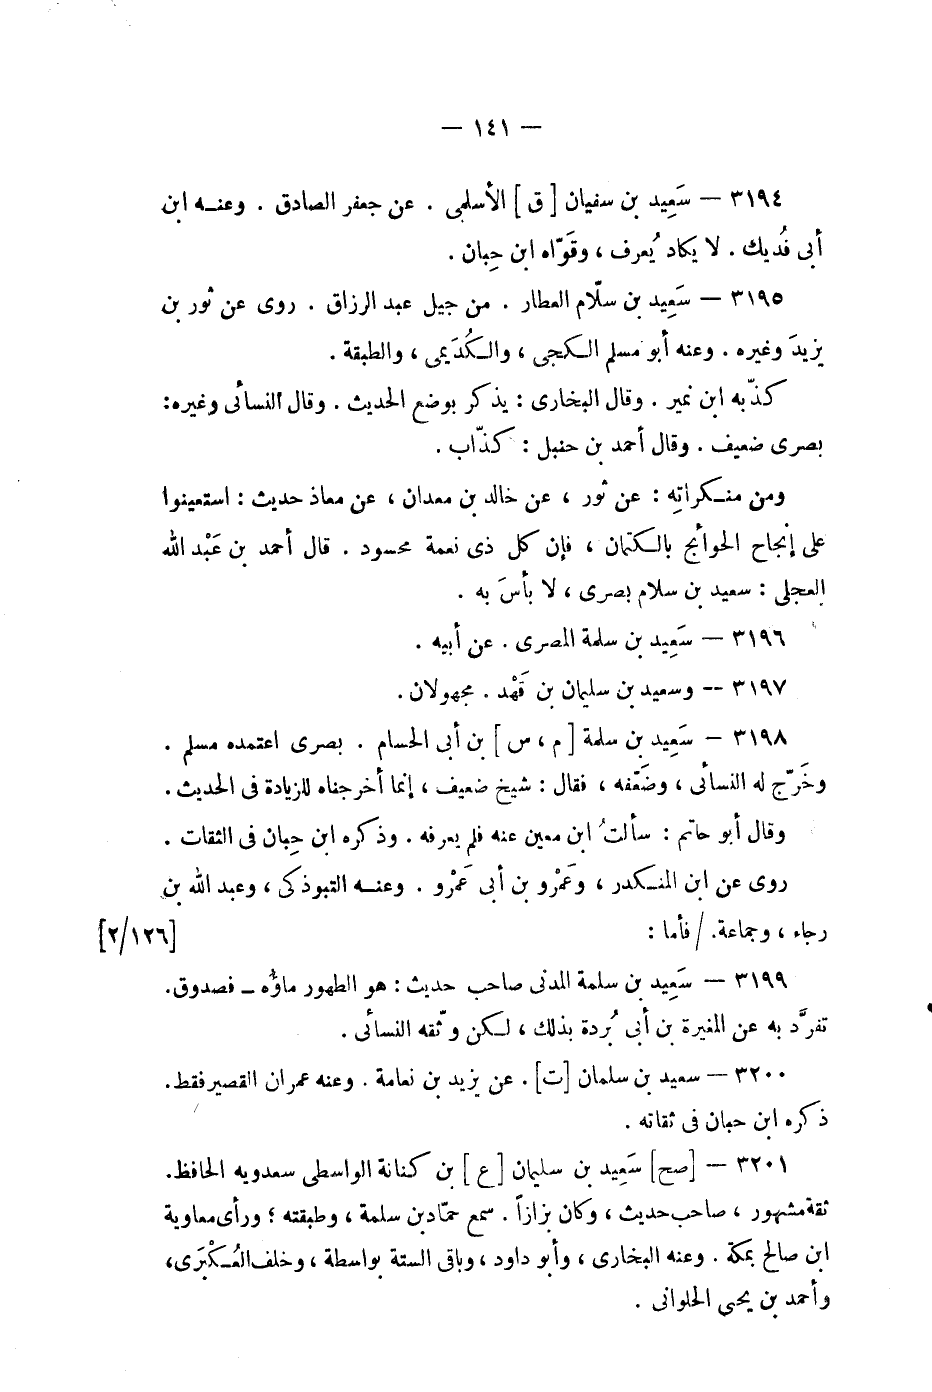 — ١٤١ —
٣١٩٤ — سَعِيد بن سفيان [ ق ] الأسلمى . عن جعفر الصادق . وعنــه ابن
أبى فُديك . لا يكاد يُعرف ، وقَوّاه ابن حِبان .
٣١٩٥ — سَعِيد بن سلّام العطار . من جيل عبد الرزاق . روى عن ثور بن
يزيدَ وغيره . وعنه أبو مسلم الـكجى ، والـكُدَيمى ، والطبقة .
كذّبه ابن نمير . وقال البخارى : يذكر بوضع الحديث . وقال النسائى وغيره:
بصرى ضعيف . وقال أحمد بن حنبل : كذّاب .
ومن منـكراتِه : عن ثور ، عن خالد بن معدان ، عن معاذ حديث : استعينوا
على إنجاح الحوائج بالـكتمان ، فإن كل ذى نعمة محسود . قال أحمد بن عَبْد الله
العجلى : سعيد بن سلام بصرى ، لا بأسَ به .
٣١٩٦ — سَعِيد بن سلمة المصرى . عن أبيه .
٣١٩٧ -- وسعيد بن سليمان بن قَهْد . مجهولان .
٣١٩٨ — سَعِيد بن سلمة [ م ، س ] بن أبى الحسام . بصرى اعتمده مسلم .
وخَرّج له النسائى ، وضَعّفه ، فقال : شيخ ضعيف ، إنما أخرجناه للزيادة فى الحديث .
وقال أبو حاتم : سألتُ ابن معين عنه فلم يعرفه . وذكره ابن حِبان فى الثقات .
روى عن ابن المنـكدر ، وعَمْرو بن أبى عَمْرو . وعنــه التبوذكى ، وعبد الله بن
رجاء ، وجماعة. / فأما : [٢/١٢٦]
٣١٩٩ — سَعِيد بن سلمة المدنى صاحب حديث : هو الطهور ماؤُه ــ فصدوق.
تفرَّد به عن المغيرة بن أبى بُردة بذلك ، لـكن وثّقه النسائى .
٣٢٠٠ — سعيد بن سلمان [ت] . عن يزيد بن نعامة . وعنه عمران القصير فقط.
ذكره ابن حبان فى ثقاته .
٣٢٠١ — [صح] سَعِيد بن سليمان [ ع ] بن كنانة الواسطى سعدويه الحافظ.
ثقة مشهور ، صاحب حديث ، وكان بزازاً . سمع حمّاد بن سلمة ، وطبقته ؛ ورأى معاوية
ابن صالح بمكة . وعنه البخارى ، وأبو داود ، وباقى الستة بواسطة ، وخلف العُـكْبَرى،
وأحمد بن يحيى الحلوانى .